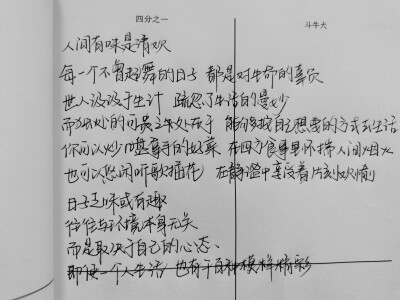 四分之一
斗牛犬
人间有味是清欢
每一个不曾起舞的日子 都是对生命的辜负
世人汲汲于生计 疏忽了生活的曼妙
而独处的可贵之处在于 能够按自己想要的方式去生活
你可以炒一盘拿手的好菜 在四方食事里怀揣人间烟火
也可以悠闲听歌插花 在静谧中享受着片刻欢愉
日子乏味或有趣
往往与环境本身无关
而是取决于自己的心态、
即使一个人生活 也有千百种模样精彩